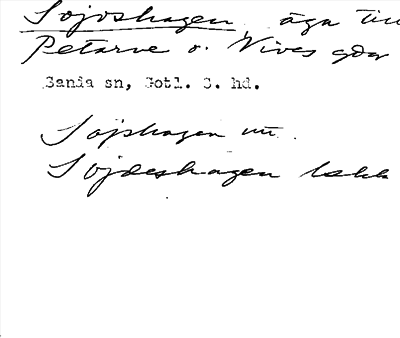 Sojvshagen äga till
Petarve o. Vives gdar
Sanda sn, Gotl. S. hd.
Sojshagen
Sojdeshagen